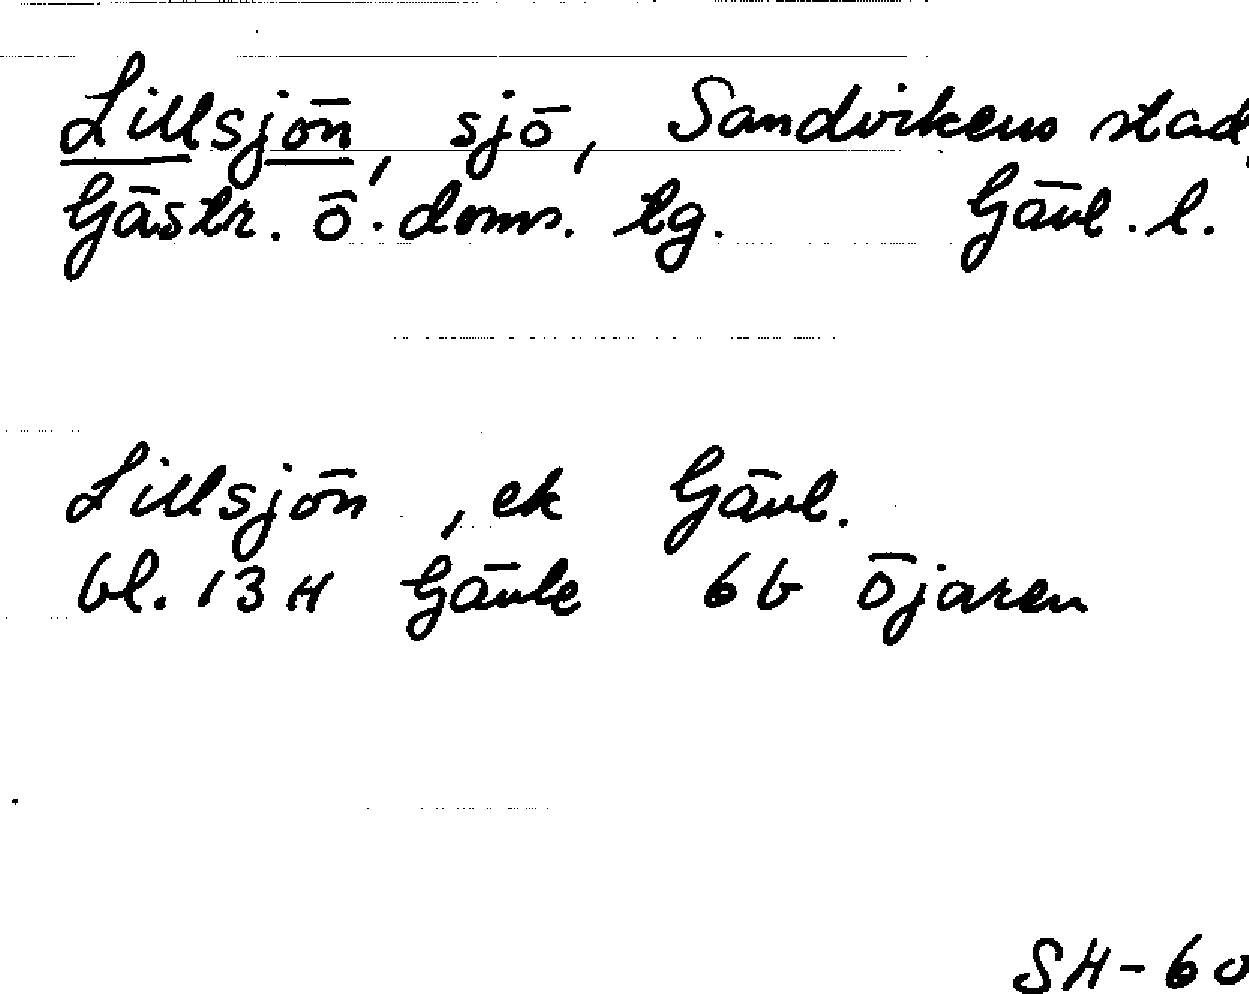 Lillsjön, sjö, Sandvikens stad,
Gästr. ö. doms. tg. Gävl. l.
Lillsjön, ek Gävl.
bl. 13 H Gävle 6 b Öjaren
SH-60